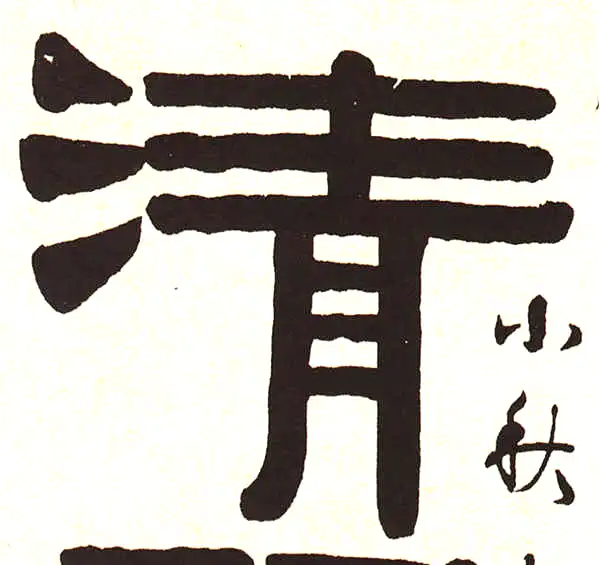 小秋
清